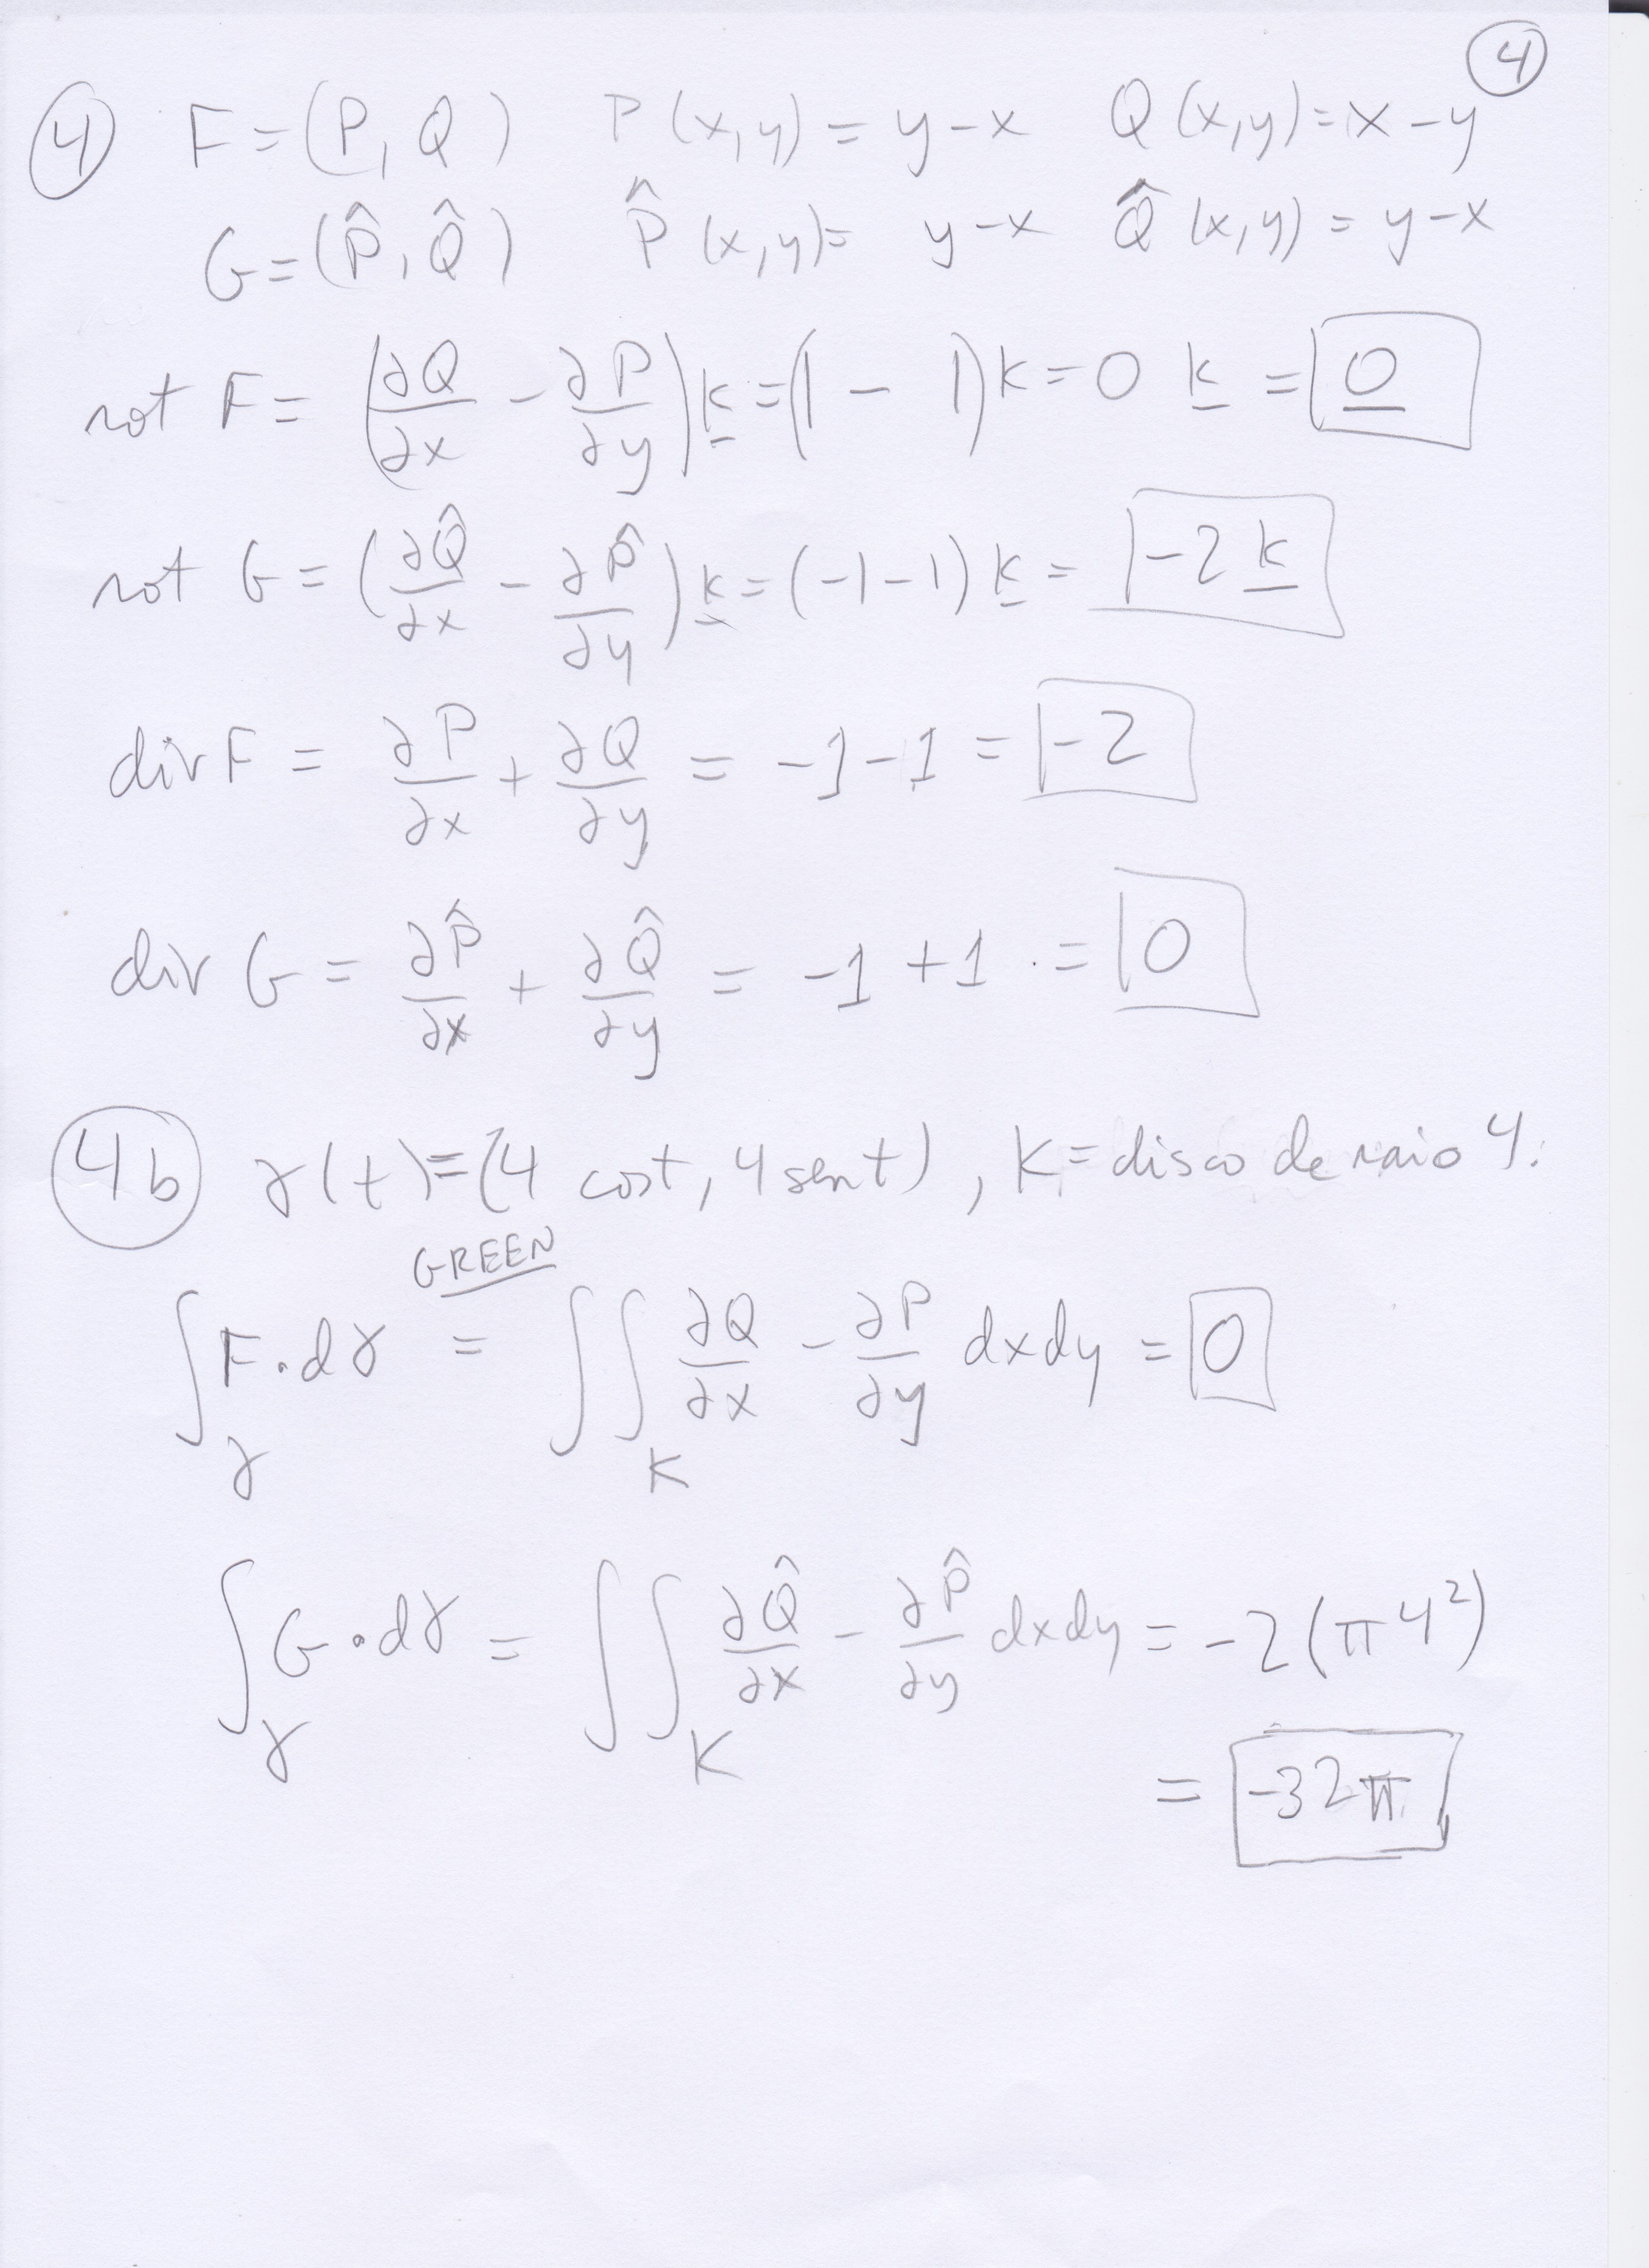 ④
④ F = (P, Q) P(x,y) = y-x Q(x,y) = x-y
G = (P̂, Q̂) P̂(x,y) = y-x Q̂(x,y) = y-x
rot F = (∂Q/∂x - ∂P/∂y) k = (1 - 1) k = 0 k = 0
rot G = (∂Q̂/∂x - ∂P̂/∂y) k = (-1-1) k = -2 k
div F = ∂P/∂x + ∂Q/∂y = -1-1 = -2
div G = ∂P̂/∂x + ∂Q̂/∂y = -1+1 = 0
4b γ(t) = (4 cost, 4 sent), K = disco de raio 4.
GREEN
∫γ F·dγ = ∫∫K ∂Q/∂x - ∂P/∂y dxdy = 0
∫γ G·dγ = ∫∫K ∂Q̂/∂x - ∂P̂/∂y dxdy = -2(π4²)
= -32π